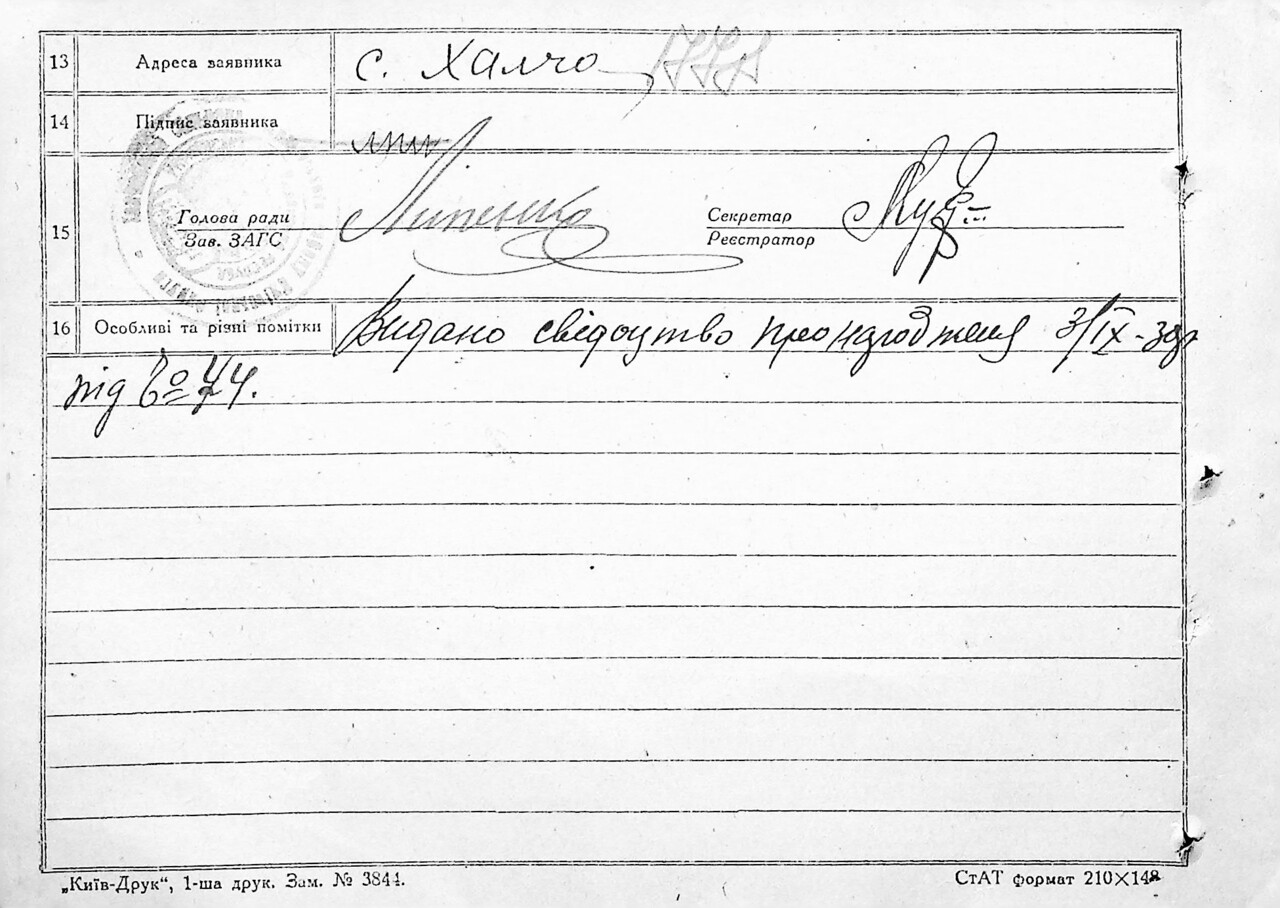 13 Адреса заявника с. Халчо
14 Підпис заявника
15 Голова ради Секретар
Зав. ЗАГС Реєстратор
16 Особливі та різні помітки Видано свідоцтво про народження 3/IX-30р
під № 74.
„Київ-Друк“, 1-ша друк. Зам. № 3844. СтАТ формат 210×148